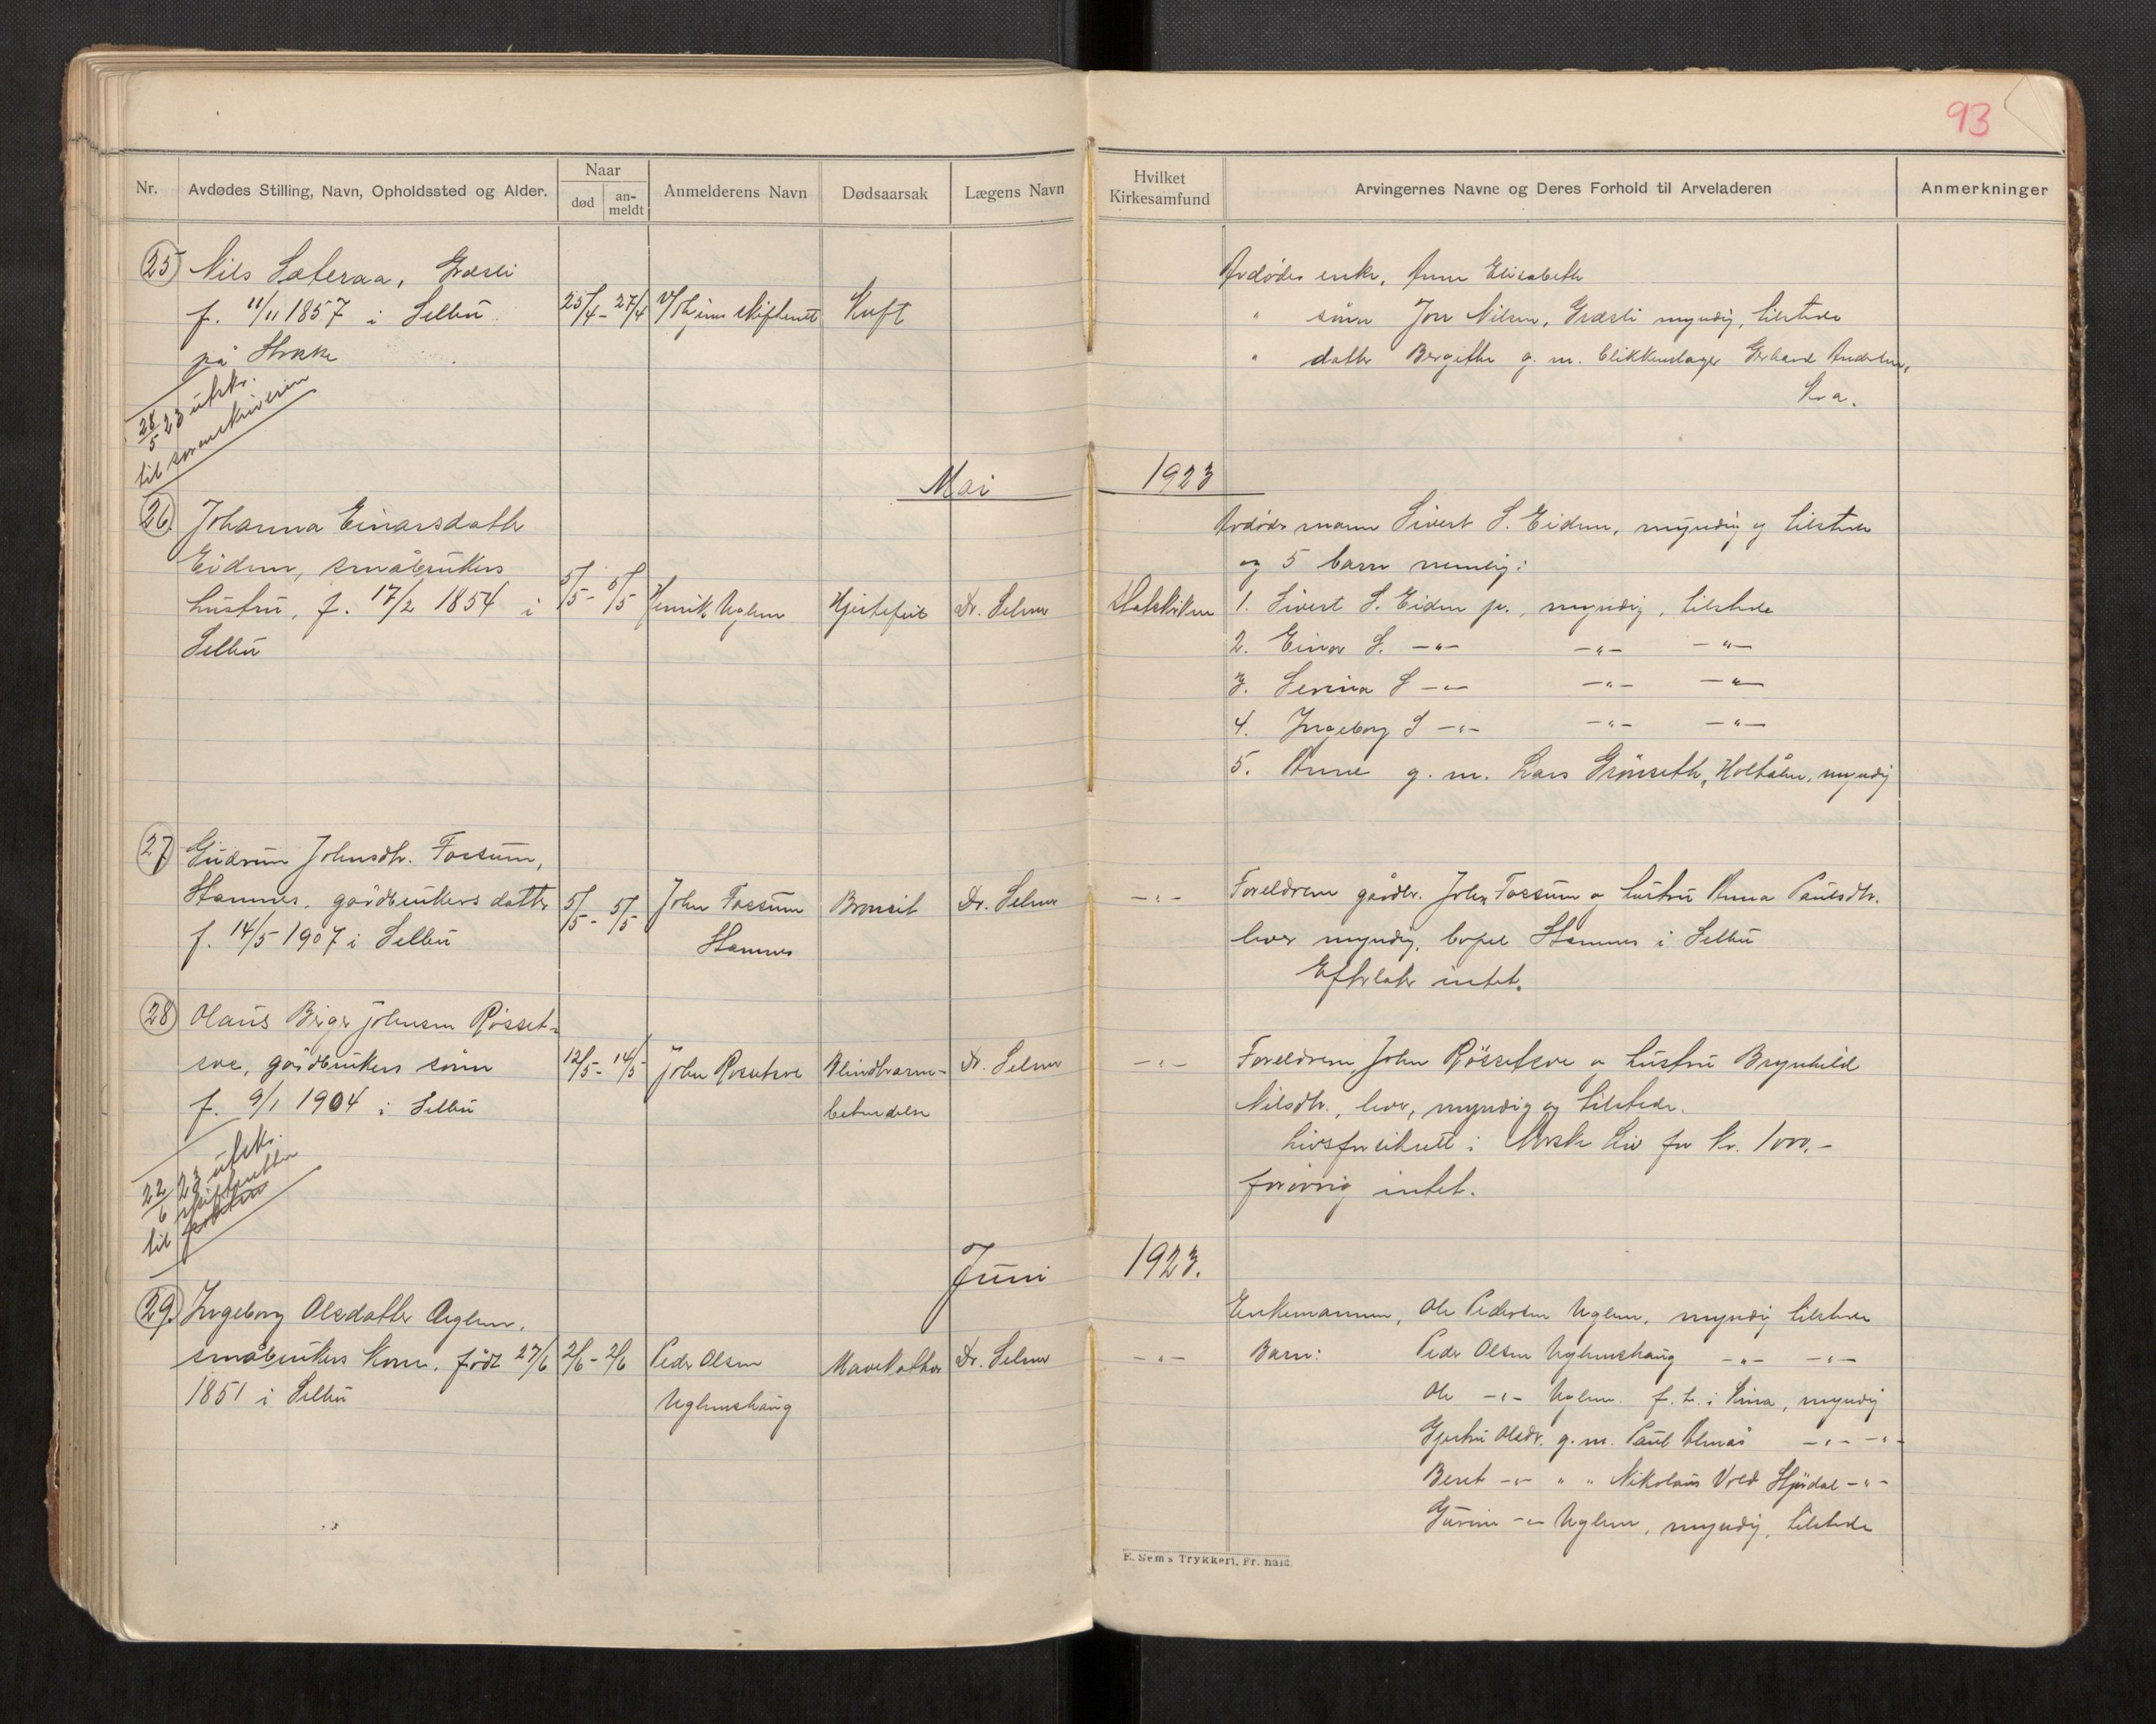 93
Nr.
Avdødes Stilling, Navn, Opholdssted og Alder.
Naar
død
an-
meldt
Anmelderens Navn
Dødsaarsak
Lægens Navn
Hvilket
Kirkesamfund
Arvingernes Navne og Deres Forhold til Arveladeren
Anmerkninger
25 Nils Sæteraa, Græsli
f. 11/11 1857 i Selbu
på Stokke
25/4 - 27/4
Kræft
28/5 23 utskr.
til sorenskriveren
Avdødes enke, Anne Elisabeth
" sønn Jon Nilsen, Græsli myndig, tilstede
" datter Bergitte g. m. blikkenslager Gerhard Andersen,
Kra.
Mai 1923
26. Johanna Einarsdatter
Eidem, småbrukers
hustru, f. 17/2 1854 i
Selbu
5/5 - 5/5
Henrik Uglem
Hjertefeil
Dr. Selmer
Statskirken
Avdødes mann Sivert S. Eidem, myndig og tilstede
og 5 barn nemlig:
1. Sivert S. Eidem jr., myndig, tilstede
2. Einar S. -"- -"- -"-
3. Serina S -"- -"- -"-
4. Ingeborg S -"- -"- -"-
5. Anne g. m. Lars Grönseth, Holtålen, myndig
27 Gudrun Johnsdtr. Fossum,
Stamnes. gårdbrukers datter
f. 14/5 1907 i Selbu
5/5 - 5/5
John Fossum
Stamnes
Bronsit
Dr. Selmer
-"-
Foreldrene gårdbr. John Fossum og hustru Anna Paulsdtr.
lever myndig, bopel Stamnes i Selbu
Efterlater intet.
28 Olaus Birger Johnsen Røsset-
sve, gårdbrukers sønn
f. 9/1 1904 i Selbu
12/5 - 14/5
John Rosetsve
Blindtarm-
betendelse
Dr. Selmer
-"-
22/6 23 utskr.
til skifteretten
Foreldrene John Røssetsve og hustru Brynhild
Nilsdtr., lever, myndig og tilstede.
Livsforsikret i Norske Liv for kr. 1000,-
forøvrig intet.
Juni 1923.
29. Ingeborg Olsdatter Uglem,
småbrukers kone. født 27/6
1851 i Selbu
2/6 - 2/6
Peder Olsen
Uglemshaug
Mavekatarr
Dr. Selmer
-"-
Enkemannen, Ole Pedersen Uglem, myndig tilstede
Barn: Peder Olsen Uglemshaug -"- -"-
Ole -"- Uglem f. t. i Kina, myndig
Gjertru Olsdr. g. m. Paul Almås -"- -"-
Beret -"- " " Nikolaus Vold Stjørdal -"-
Guruine -"- Uglem, myndig, tilstede
E. Sem's Trykkeri, Fr. hald